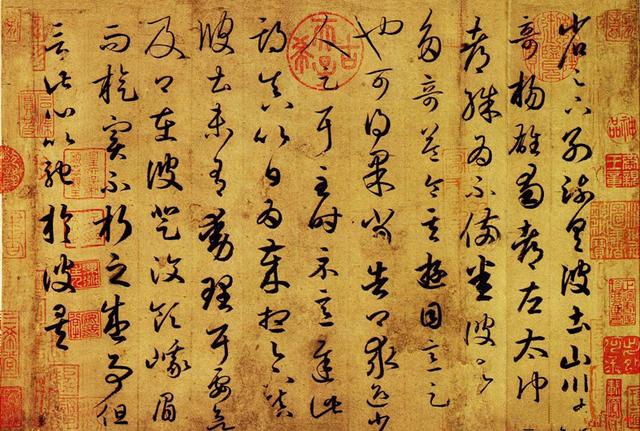 省足下別疏具彼土山川諸
奇揚雄蜀都左太沖三
都殊為不備悉彼故為
多奇益令其遊目意足
也可得果當告卿求迎少
人足耳至時示意遲此
期真以日為歲想足下鎮
彼土未有動理耳要欲
及卿在彼登汶領峨眉
而旋實不朽之盛事但
言此心以馳於彼矣
古希天子